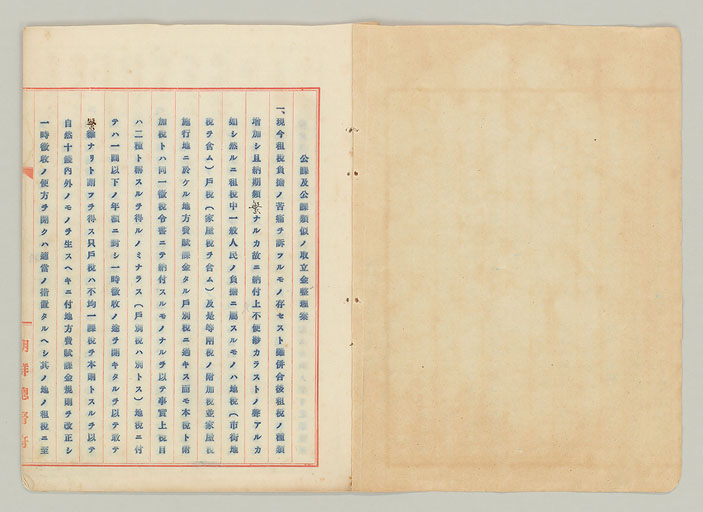 公課及公課類似ノ取立金整理案
一、現今租稅負擔ノ苦痛ヲ訴フルモノ存セスト雖併合後租稅ノ種類
增加シ且納期頻繁ナルカ故ニ納付上不便尠カラストノ聲アルカ
如シ然ルニ租稅中一般人民ノ負擔ニ屬スルモノハ地稅(市街地
稅ヲ含ム)戶稅(家屋稅ヲ含ム)及是等兩稅ノ附加稅並家屋稅
施行地ニ於ケル地方費賦課金タル戶別稅ニ過キス而モ本稅ト附
加稅トハ同一徵稅令書ニテ納付スルモノナルヲ以テ事實上稅目
ハ二種ト稱スルヲ得ルノミナラス(戶別稅ハ別トス)地稅ニ付
テハ一圓以下ノ年額ニ對シ一時徵收ノ途ヲ開キタルヲ以テ敢テ
繁雜ナリト謂フヲ得ス只戶稅ハ不均一課稅ヲ本則トスルヲ以テ
自然十錢內外ノモノヲ生スヘキニ付地方費賦課金規則ヲ改正シ
一時徵收ノ便方ヲ開クハ適當ノ措置タルヘシ其ノ他ノ租稅ニ至
朝鮮總督府